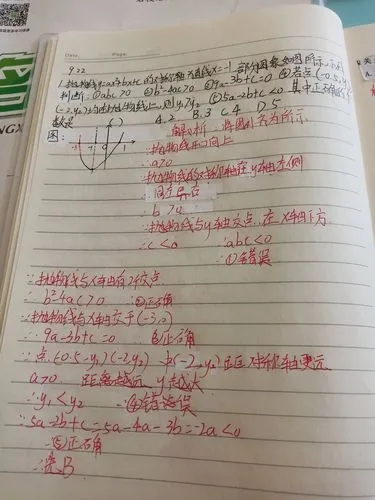 Date. Page.
9.22
1.抛物线y=ax²+bx+c的对称轴为直线x=-1,部分图象如图所示,下列
判断:①abc>0 ②b²-4ac>0 ③9a-3b+c=0 ④若点(-0.5,y₁)
(-2,y₂)均在抛物线上,则y₁>y₂ ⑤5a-2b+c<0 其中正确的个
数是 ( ) A.2 B.3 C.4 D.5
图: 解析: 将图补充为所示.
∵抛物线开口向上
∴a>0
∵抛物线的对称轴在y轴左侧
b>0
∵抛物线与y轴交点在x轴下方
∴c<0 ∴abc<0
∴①错误
∵抛物线与x轴有2个交点
∴b²-4ac>0 ∴②正确
∵抛物线与x轴交于(-3,0)
∴9a-3b+c=0 ③正确
∵点(-0.5,y₁)(-2,y₂) 中(-2,y₂)距对称轴更远
a>0 距离越远y越大
∴y₁<y₂ ∴④错误
∵5a-2b+c=5a-4a-3b=-2a<0
∴⑤正确
∴选B